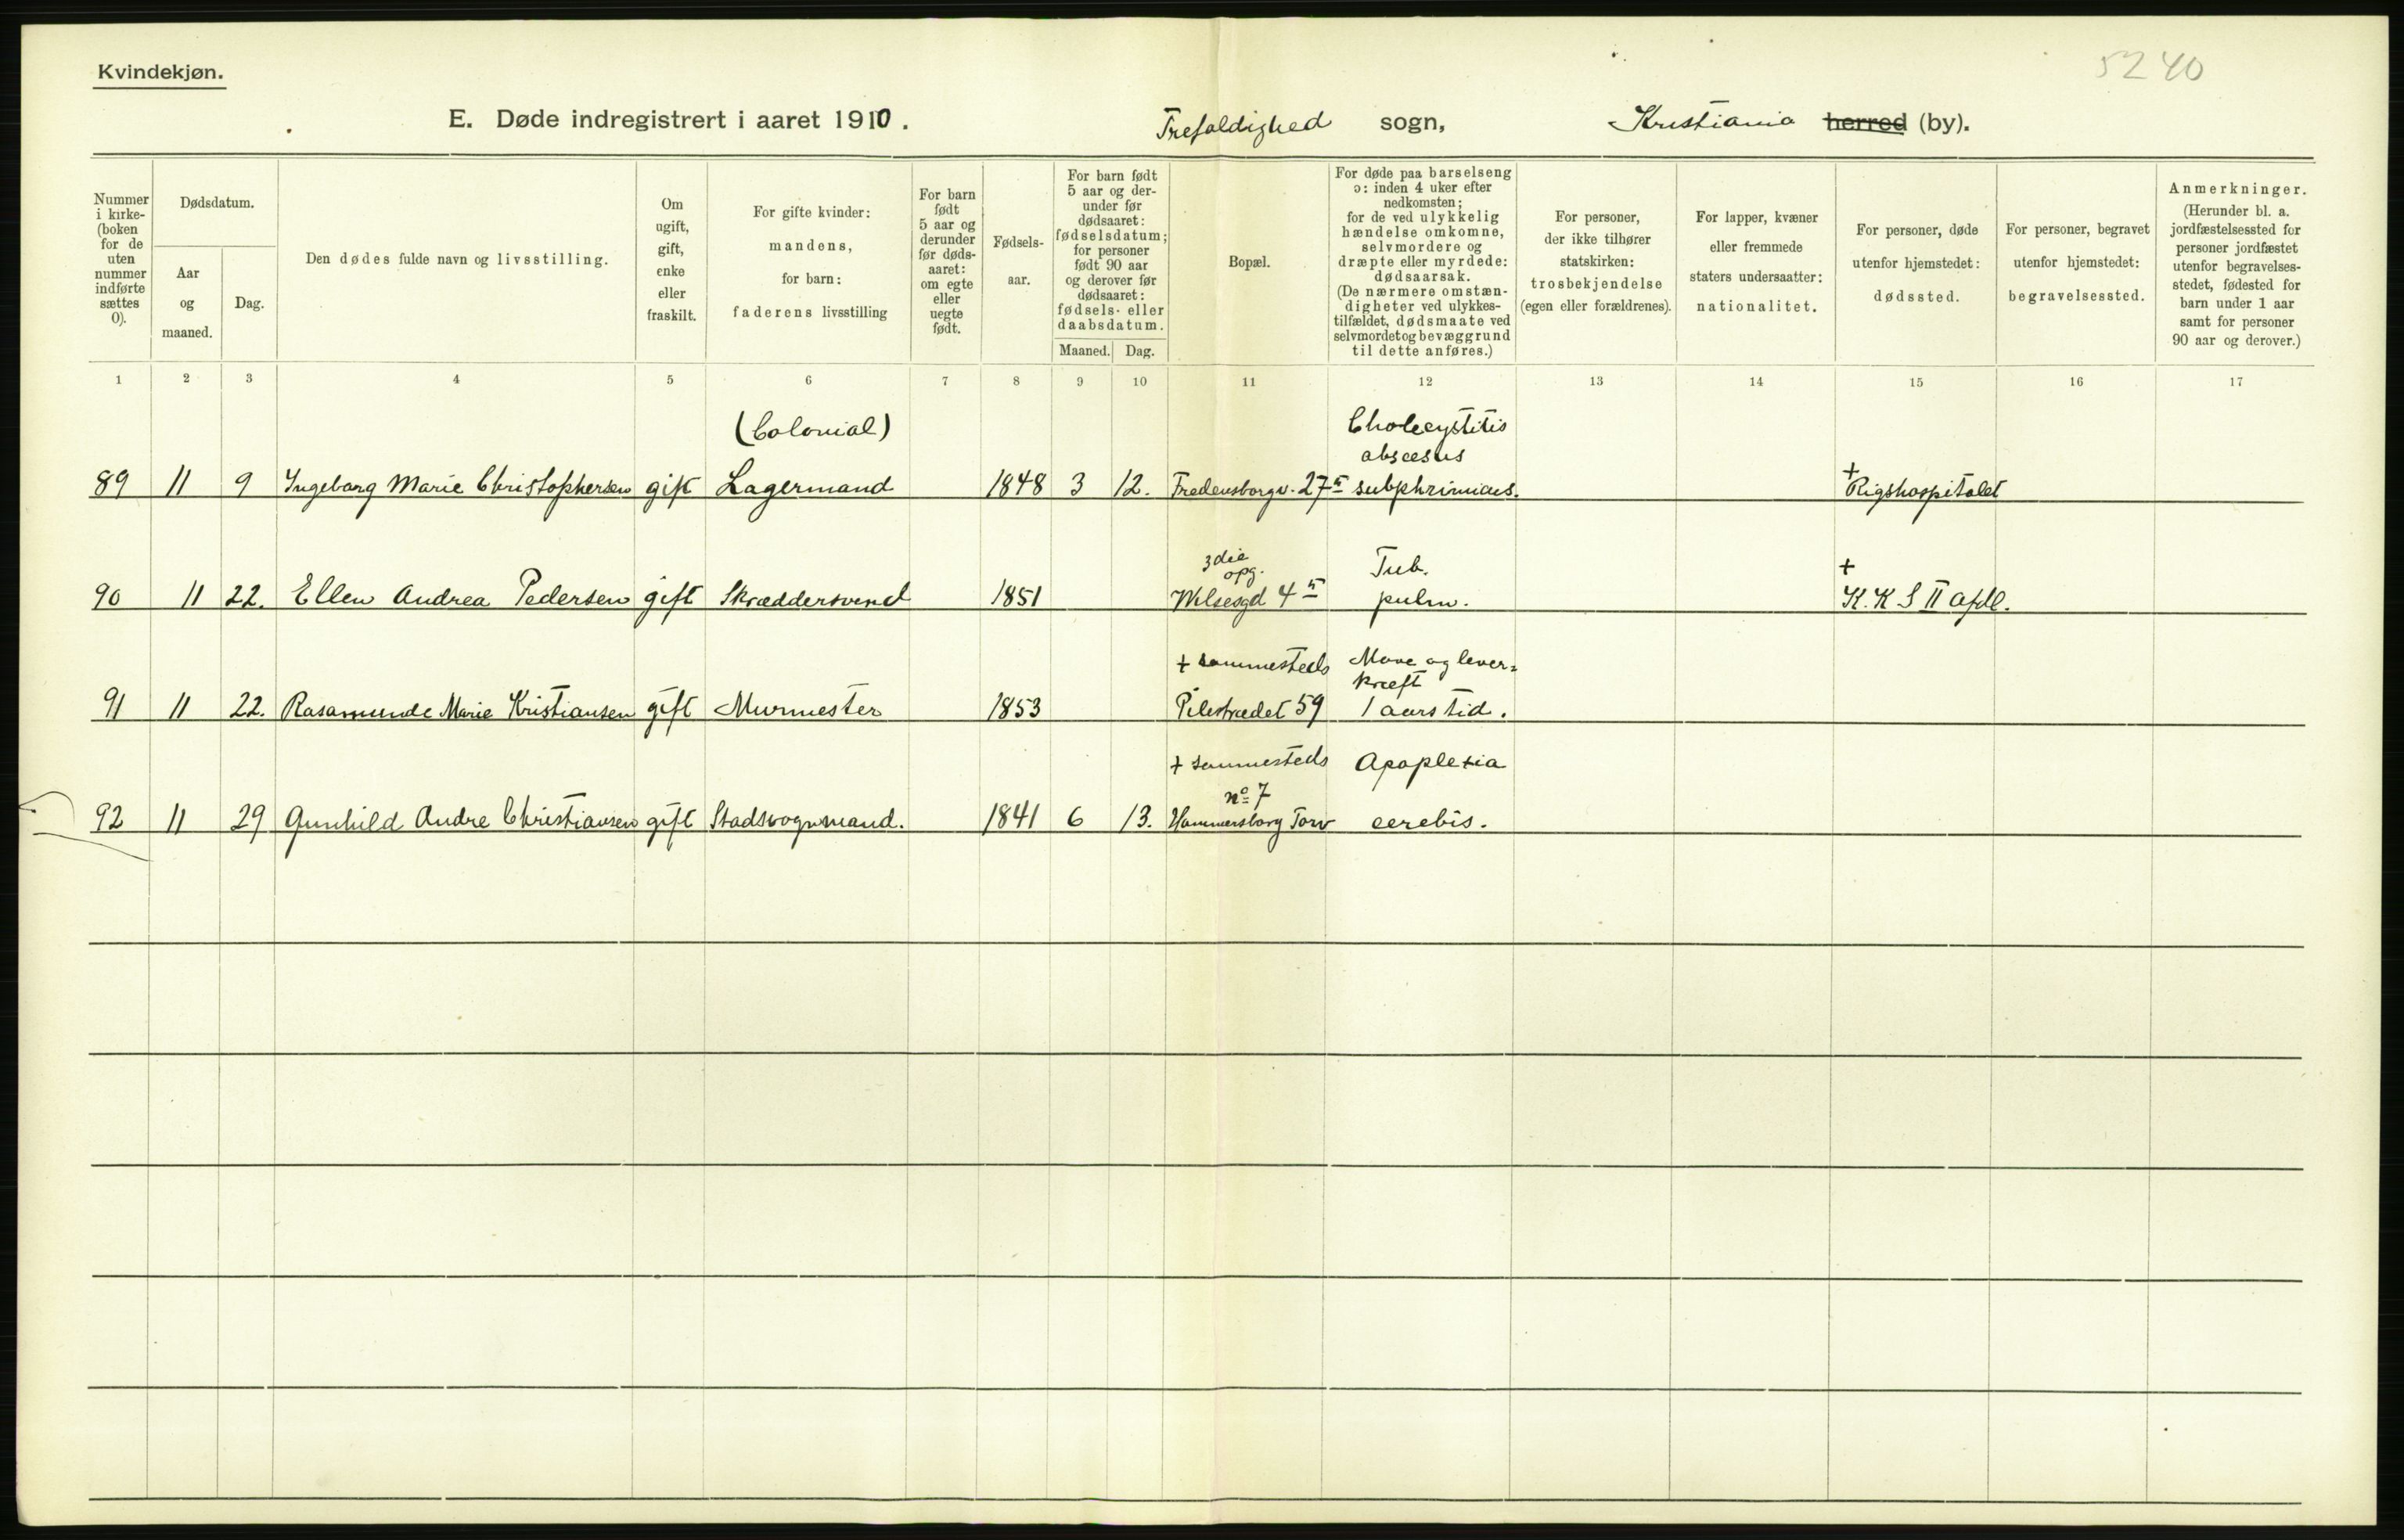 5240
Kvindekjøn.
E. Døde indregistrert i aaret 1910. Trefoldighed sogn, Kristiania herred (by).
Nummer i kirke- (boken for de uten nummer indførte sættes 0).
Dødsdatum.
Aar og maaned.
Dag.
Den dødes fulde navn og livsstilling.
Om ugift, gift, enke eller fraskilt.
For gifte kvinder: mandens, for barn: faderens livsstilling
For barn født 5 aar og derunder før døds- aaret: om egte eller uegte født.
Fødsels- aar.
For barn født 5 aar og der- under før dødsaaret: fødselsdatum; for personer født 90 aar og derover før dødsaaret: fødsels- eller daabsdatum.
Maaned. Dag.
Bopæl.
For døde paa barselseng ɔ: inden 4 uker efter nedkomsten; for de ved ulykkelig hændelse omkomne, selvmordere og dræpte eller myrdede: dødsaarsak. (De nærmere omstæn- digheter ved ulykkes- tilfældet, dødsmaate ved selvmordet og bevæggrund til dette anføres.)
For personer, der ikke tilhører statskirken: trosbekjendelse (egen eller forældrenes).
For lapper, kvæner eller fremmede staters undersaatter: nationalitet.
For personer, døde utenfor hjemstedet: dødssted.
For personer, begravet utenfor hjemstedet: begravelsessted.
Anmerkninger. (Herunder bl. a. jordfæstelsessted for personer jordfæstet utenfor begravelses- stedet, fødested for barn under 1 aar samt for personer 90 aar og derover.)
1 2 3 4 5 6 7 8 9 10 11 12 13 14 15 16 17
(Colonial) Cholecystitis
abscesus
89 11 9 Ingeborg Marie Christophersen gift Lagermand 1848 3 12. Fredensborgv. 27 II subphrinicus. + Rigshospitalet
3die opg. Tub. +
90 11 22. Ellen Andrea Pedersen gift Skræddersvend 1851 Wilsesgd 4 II pulm. K. K S II afdl.
+ sammesteds Mave og lever-
kræft
91 11 22. Rasamunde Marie Kristiansen gift Murmester 1853 Pilestrædet 59 1 aars tid.
+ sammesteds Apoplexia
No 7
92 11 29 Gunhild Andre Christiansen gift Stadsvognmand. 1841 6 13. Hammersborg Torv cerebis.